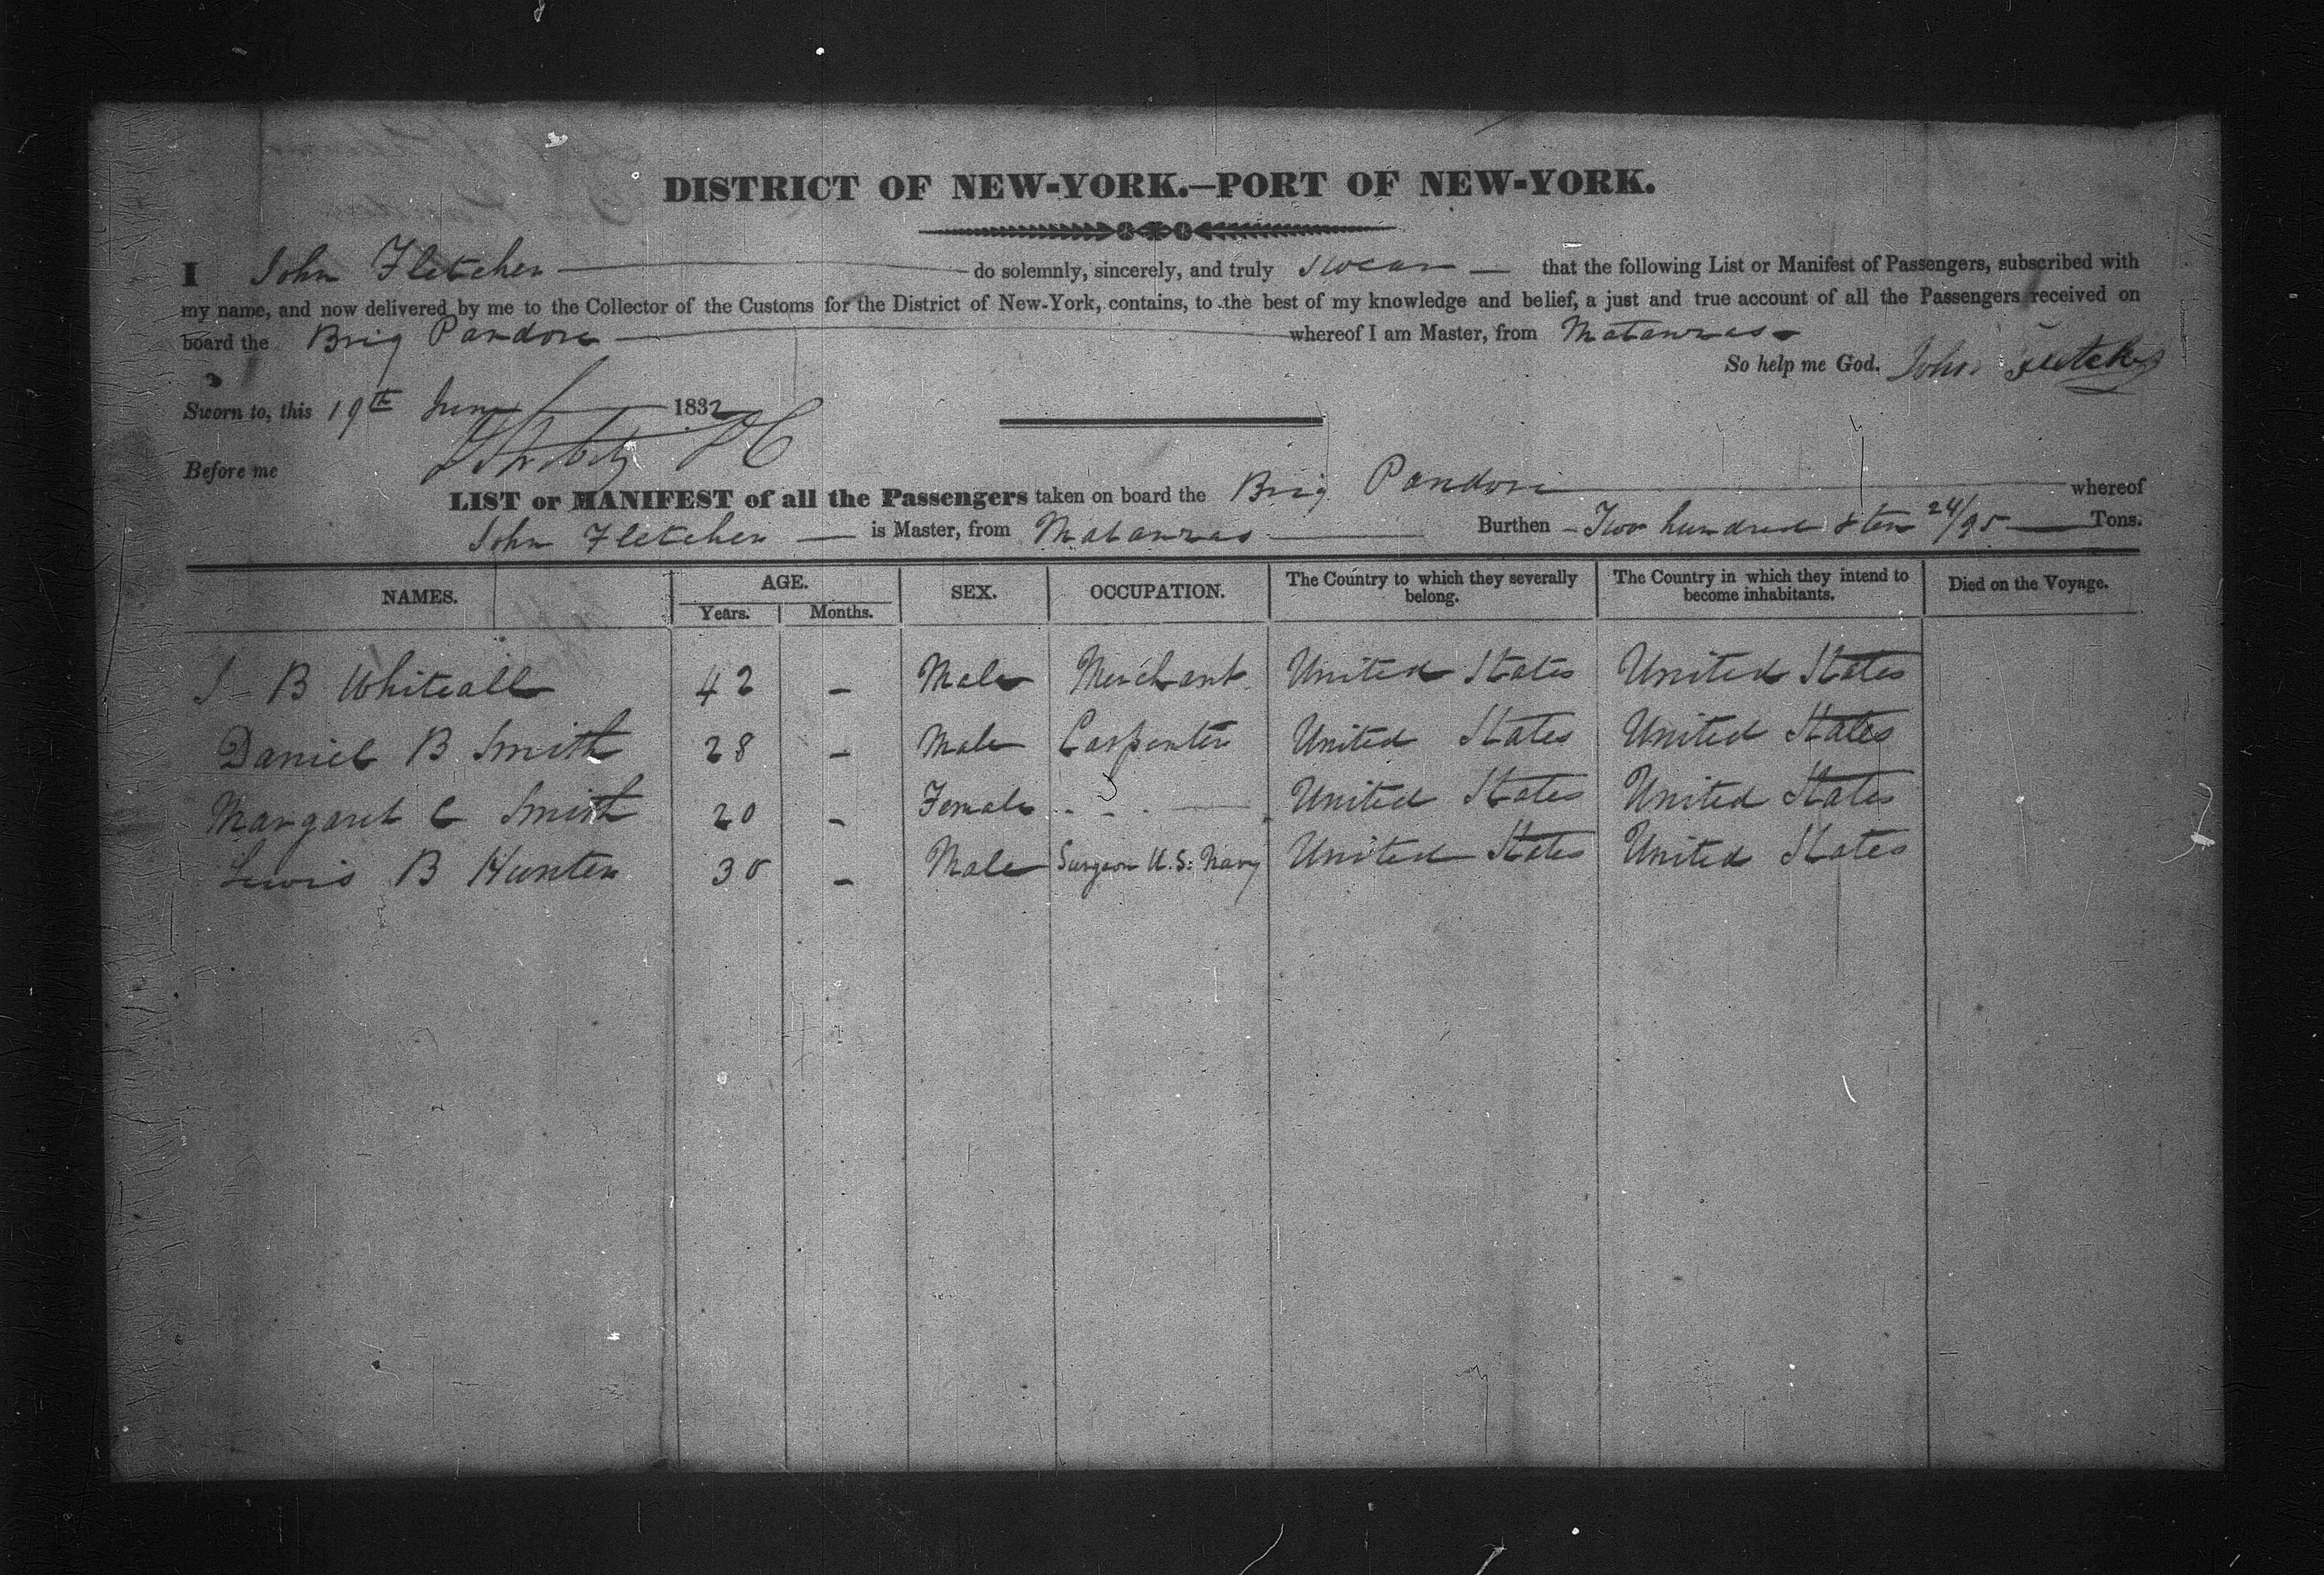 DISTRICT OF NEW-YORK.—PORT OF NEW-YORK.
I John Fletcher do solemnly, sincerely, and truly swear that the following List or Manifest of Passengers, subscribed with
my name, and now delivered by me to the Collector of the Customs for the District of New-York, contains, to the best of my knowledge and belief, a just and true account of all the Passengers received on
board the Brig Pandora whereof I am Master, from Matanzas
So help me God. John Fletcher
Sworn to, this 19th June 1832
Before me
LIST or MANIFEST of all the Passengers taken on board the Brig Pandora whereof
John Fletcher is Master, from Matanzas Burthen Two hundred & ten 24/95 Tons.
NAMES. AGE. Years. Months. SEX. OCCUPATION. The Country to which they severally belong. The Country in which they intend to become inhabitants. Died on the Voyage.
B Whiteall 42 – Male Merchant United States United States
Daniel B Smith 28 – Male Carpenter United States United States
Margaret C Smith 20 – Female United States United States
Lewis B Hunter 30 – Male Surgeon U.S. Navy United States United States